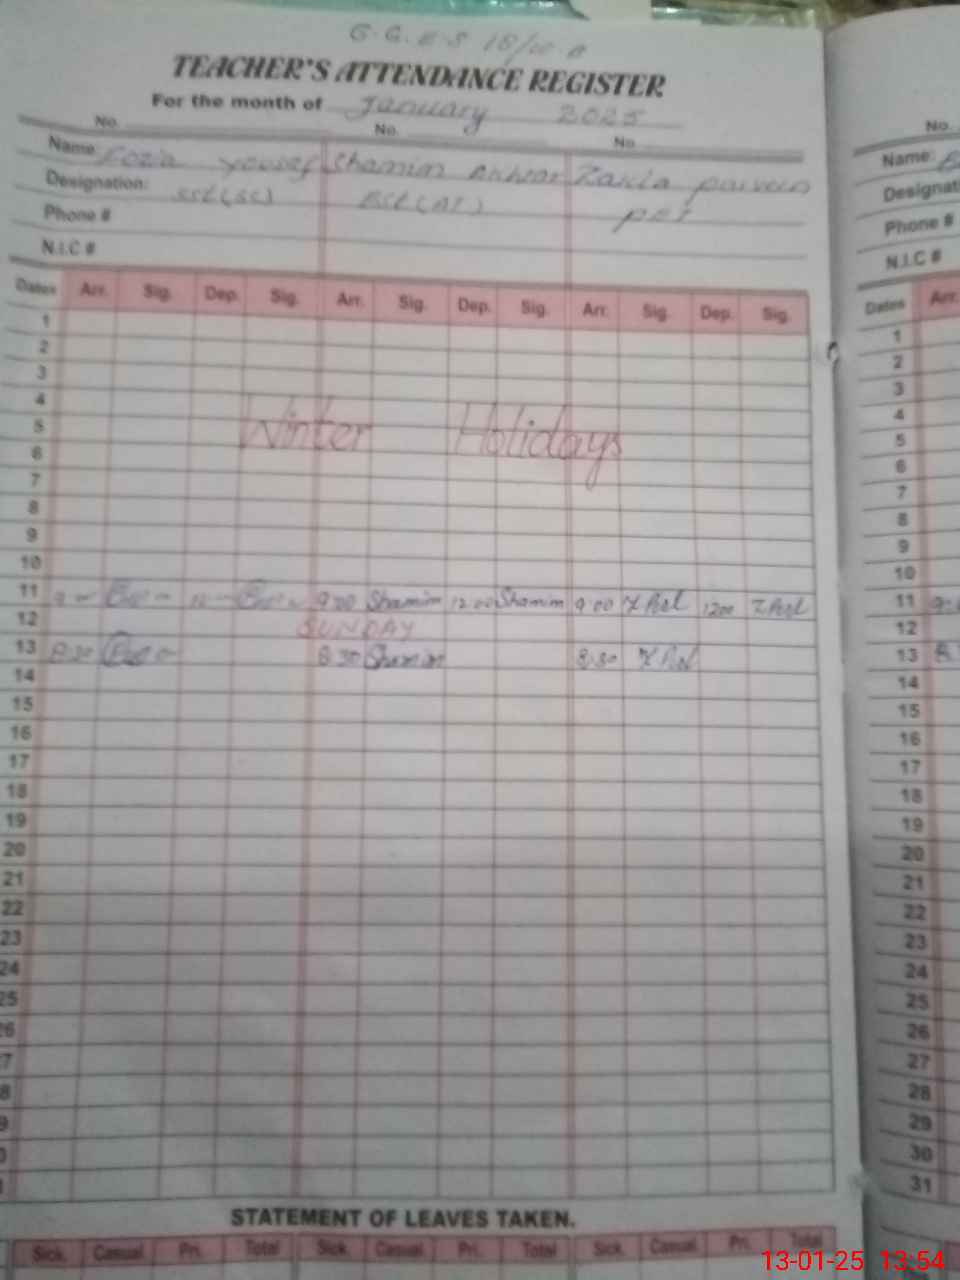 G.G.E.S 18/
TEACHER'S ATTENDANCE REGISTER
For the month of January 2025
No. No. No.
Name: Fozia Yousaf Shamim Akhtar Zakia parveen
Designation: SST(SC) PET
Phone #
N.I.C #
Dates Arr. Sig. Dep. Sig. Arr. Sig. Dep. Sig. Arr. Sig. Dep. Sig.
1
2
3
4
5 Winter Holidays
6
7
8
9
10
11 9 00 Shamim 12 00 Shamim 9 00 1200
12 SUNDAY
13 8:30 8 30 Shamim 8:30
14
15
16
17
18
19
20
21
22
23
24
25
26
7
8
9
STATEMENT OF LEAVES TAKEN.
Sick. Casual. Pri. Total Sick. Casual. Pri. Total Sick. Casual. Pri. Total
No.
Name:
Designati
Phone #
N.I.C #
Dates Arr.
1
2
3
4
5
6
7
8
9
10
11
12
13
14
15
16
17
18
19
20
21
22
23
24
25
26
27
28
29
30
31
13-01-25 13:54